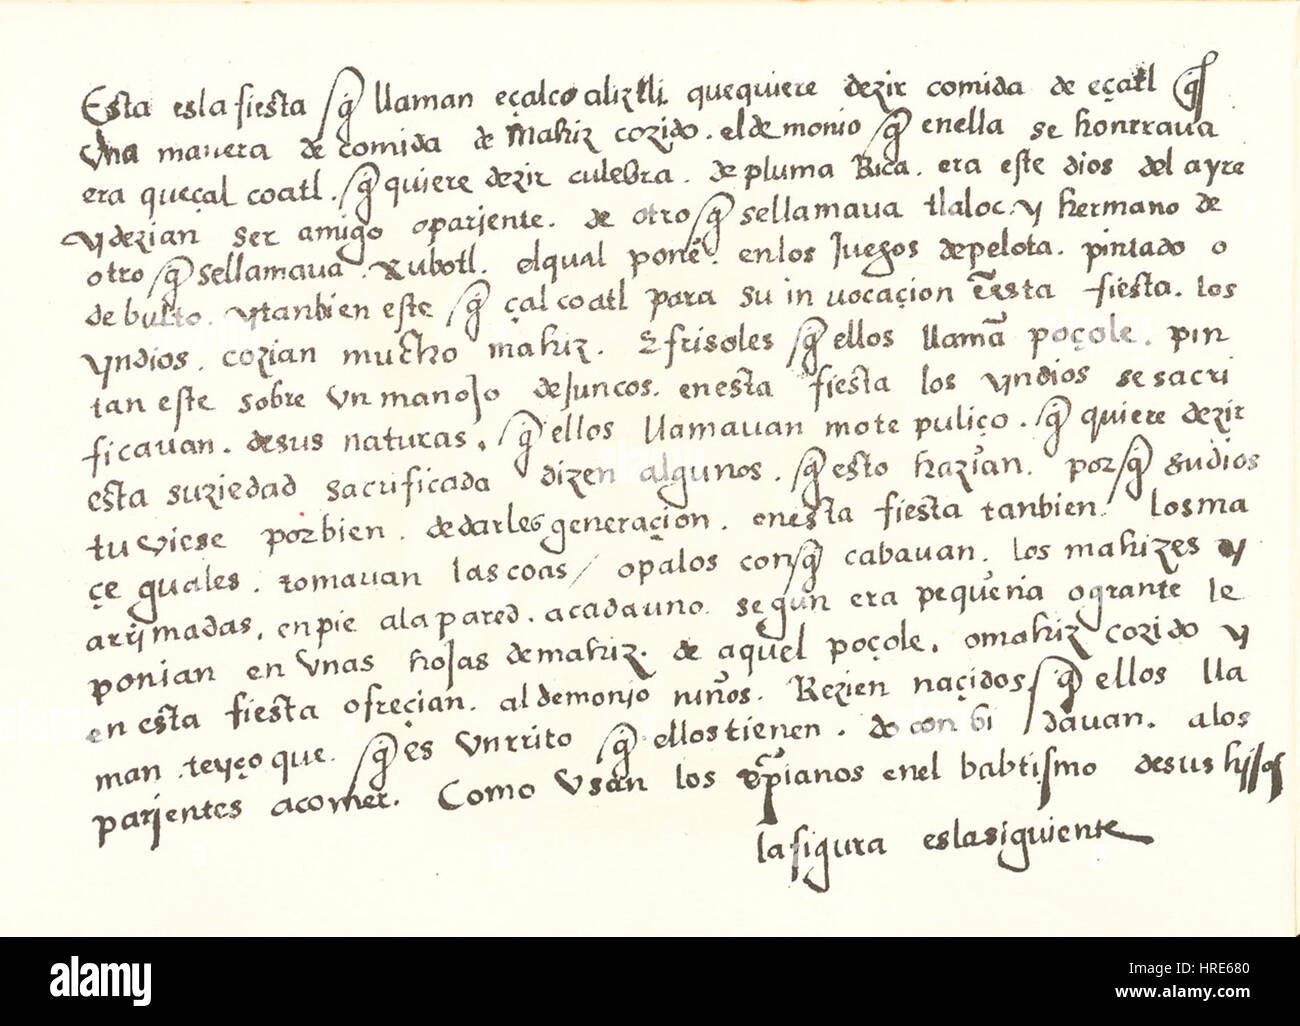 Esta es la fiesta q̃ llaman eçalcoaliztli. que quiere dezir comida de eçatl q̃
Vna manera de comida de Mahiz cozido. el demonio q̃ en ella se honrraua
era queçalcoatl. q̃ quiere dezir culebra. de pluma Rica. era este dios del ayre
y dezian ser amigo o pariente. de otro q̃ se llamaua tlaloc. y hermano de
otro q̃ se llamaua. xubotl. el qual ponẽ. en los juegos de pelota. pintado o
de bulto. y tanbien este q̃ çalcoatl para su invocaçion esta fiesta. los
yndios. cozian mucho mahiz. E frisoles q̃ ellos llamã poçole. pin
tan este sobre vn manojo de juncos. en esta fiesta los yndios se sacri
ficauan. de sus naturas. q̃ ellos llamauan motepuliço. q̃ quiere dezir
esta suziedad sacrificada dizen algunos. q̃ esto hazian. porq̃ su dios
tuviese por bien. de darles generaçion. en esta fiesta tanbien los ma
çeguales. tomauan las coas / o palos con q̃ cabauan. los mahizes y
arrimadas, en pie a la pared. a cada uno segun era pequeña o grante le
ponian en vnas hojas de mahiz. de aquel poçole. o mahiz cozido y
en esta fiesta ofreçian. al demonio niños. Rezien naçidos. q̃ ellos lla
man. teyçoque. q̃ es vn rrito q̃ ellos tienen. do conbidauan. a los
parientes a comer. Como vsan los xp̃ianos en el babtismo de sus hijos
la figura es la siguiente
alamy
Image ID: HRE680
www.alamy.com